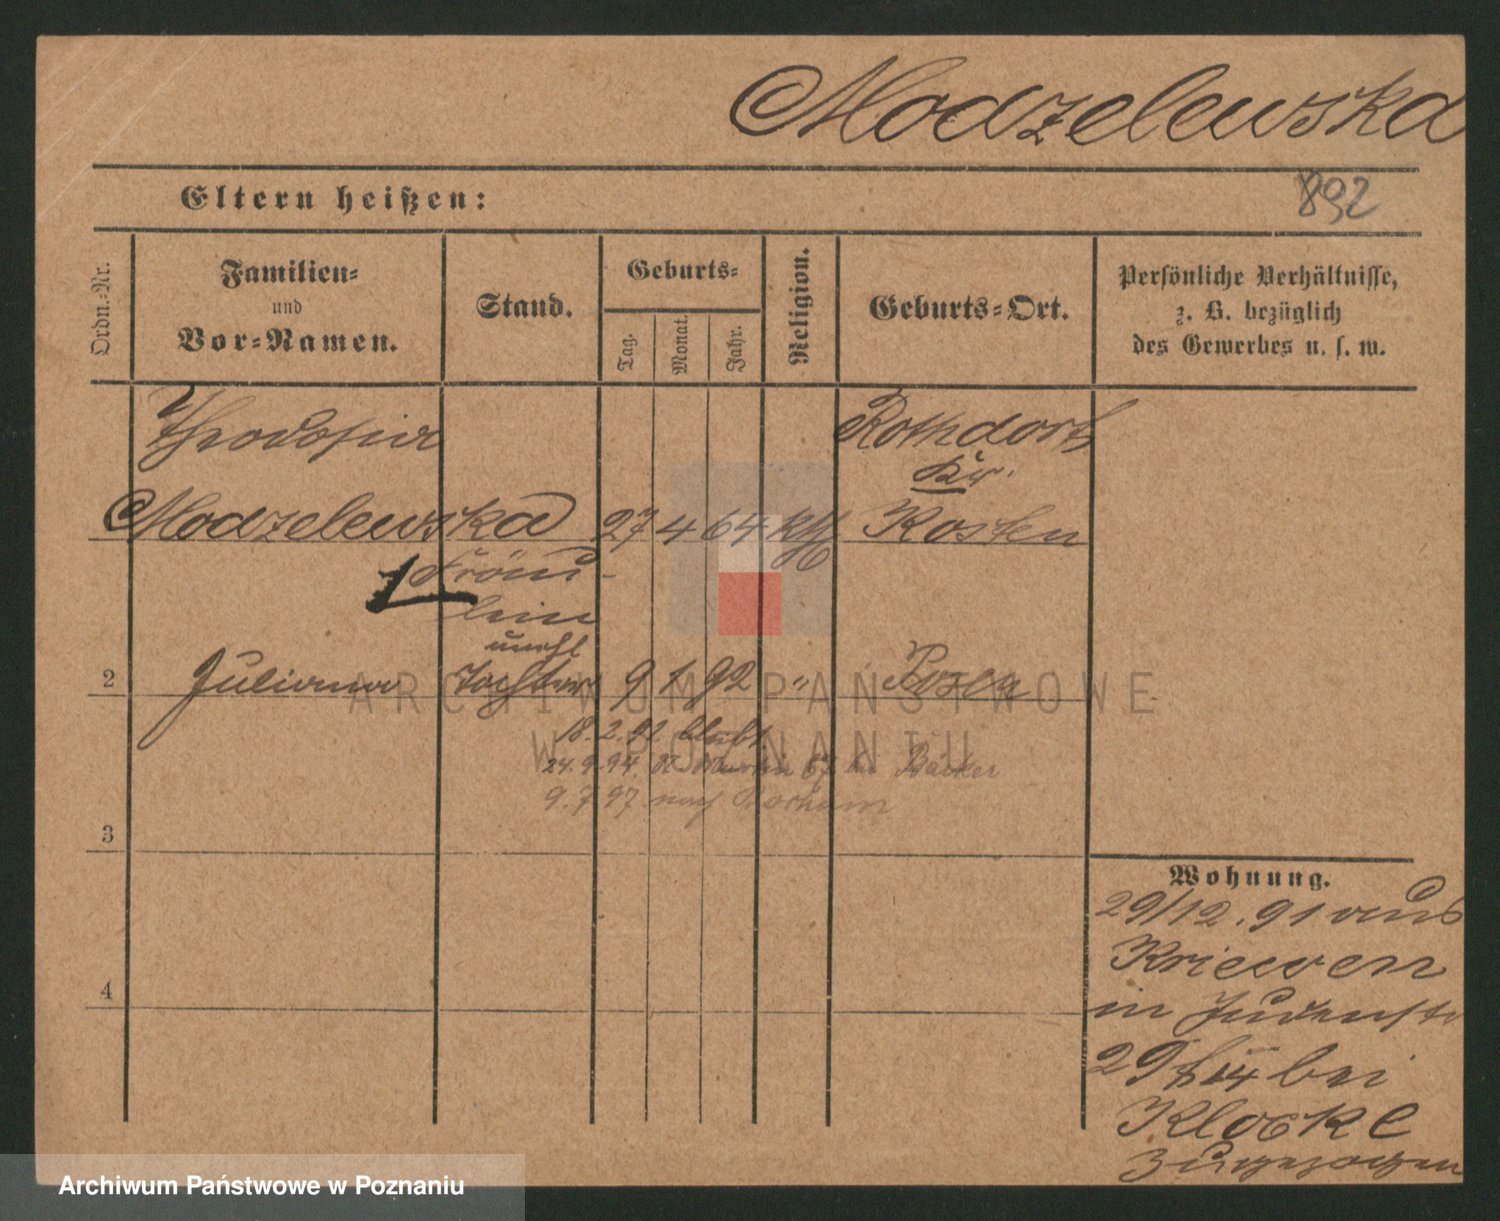 Modzelewska
Eltern heißen:
892
Ordn.-Nr.
Familien-
und
Vor-Namen.
Stand.
Geburts-
Tag.
Monat.
Jahr.
Religion.
Geburts-Ort.
Persönliche Verhältnisse,
z. B. bezüglich
des Gewerbes u. s. w.
Theodosia
Rothdorf
Kr.
Modzelewska 27 4 64 kth Kosten
1 Fräu-
lein
unehl
2 Juliana Tochter 9 1 92 " Posen
18.2.92
24.9.94 Bäcker
9.7.97 nach Bochum
3
4
Wohnung.
29/12.91 aus
Kriewen
in Judenstr
29 bei
Klocke
zugezogen
ARCHIWUM PAŃSTWOWE
W POZNANIU
Archiwum Państwowe w Poznaniu